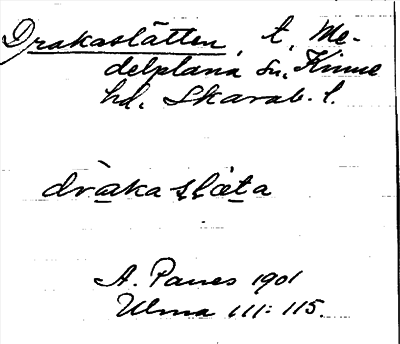 Drakaslätten, t, Me-
delplana sn, Kinne
hd, Skarab. l.
dràka sḷæta
A. Panes 1901
Ulma 111: 115.